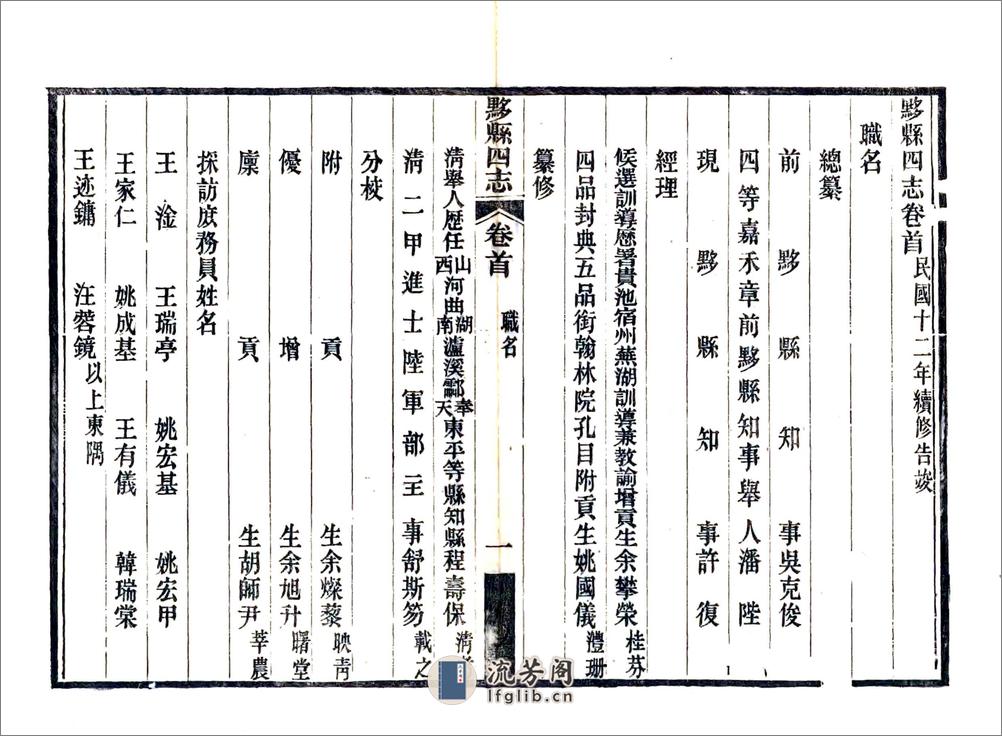 黟縣四志卷首 民國十二年續修告竣
職名
總纂
前黟縣知事吳克俊
四等嘉禾章前黟縣知事舉人潘陛
現黟縣知事許復
經理
候選訓導歷署貴池宿州蕪湖訓導兼教諭增貢生余攀榮 桂芬
四品封典五品銜翰林院孔目附貢生姚國儀 澧珊
纂修
黟縣四志 卷首 職名 一
清舉人歷任山西河曲湖南瀘溪酃奉天東平等縣知縣程壽保
清二甲進士陸軍部主事舒斯笏 載之
分校
附貢生余燦藜 映青
優增生余旭升 曙堂
廩貢生胡師尹 莘農
採訪庶務員姓名
王淦 王瑞亭 姚宏基 姚宏甲
王家仁 姚成基 王有儀 韓瑞棠
王迹鏞 汪蓉鏡 以上東隅
流芳阁
lfglib.cn